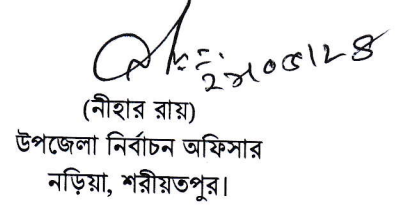 (নীহার রায়)
উপজেলা নির্বাচন অফিসার
নড়িয়া, শরীয়তপুর।